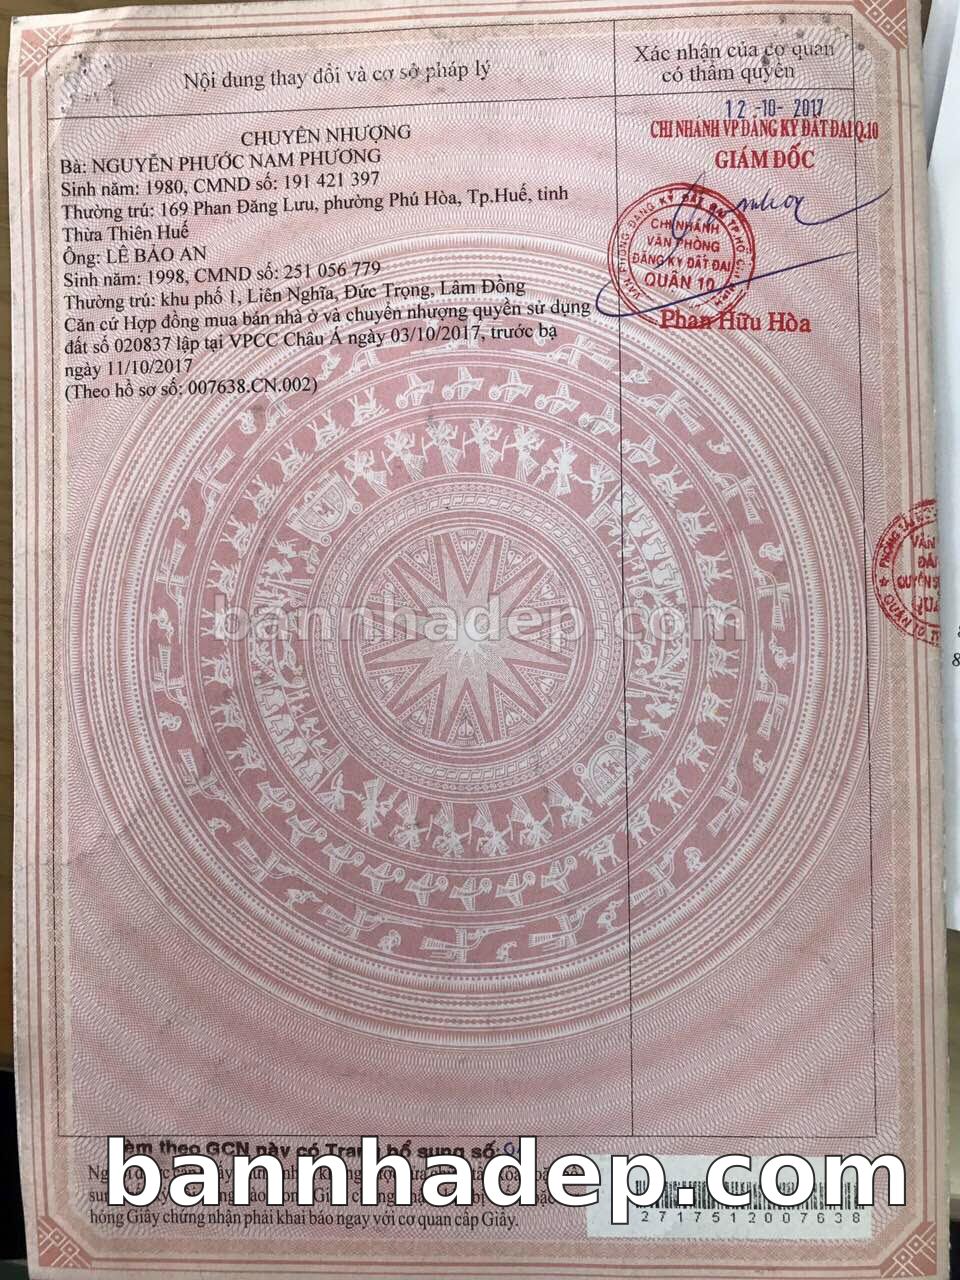 Nội dung thay đổi và cơ sở pháp lý
Xác nhận của cơ quan
có thẩm quyền
CHUYỂN NHƯỢNG
Bà: NGUYỄN PHƯỚC NAM PHƯƠNG
Sinh năm: 1980, CMND số: 191 421 397
Thường trú: 169 Phan Đăng Lưu, phường Phú Hòa, Tp.Huế, tỉnh
Thừa Thiên Huế
Ông: LÊ BẢO AN
Sinh năm: 1998, CMND số: 251 056 779
Thường trú: khu phố 1, Liên Nghĩa, Đức Trọng, Lâm Đồng
Căn cứ Hợp đồng mua bán nhà ở và chuyển nhượng quyền sử dụng
đất số 020837 lập tại VPCC Châu Á ngày 03/10/2017, trước bạ
ngày 11/10/2017
(Theo hồ sơ số: 007638.CN.002)
12 -10- 2017
CHI NHÁNH VP ĐĂNG KÝ ĐẤT ĐAI Q.10
GIÁM ĐỐC
VĂN PHÒNG ĐĂNG KÝ ĐẤT ĐAI TP.HỒ CHÍ MINH
CHI NHÁNH
VĂN PHÒNG
ĐĂNG KÝ ĐẤT ĐAI
QUẬN 10
Phan Hữu Hòa
bannhadep.com
GCN này có Trang bổ sung số:
hỏng Giấy chứng nhận phải khai báo ngay với cơ quan cấp Giấy.
bannhadep.com
2717512007638